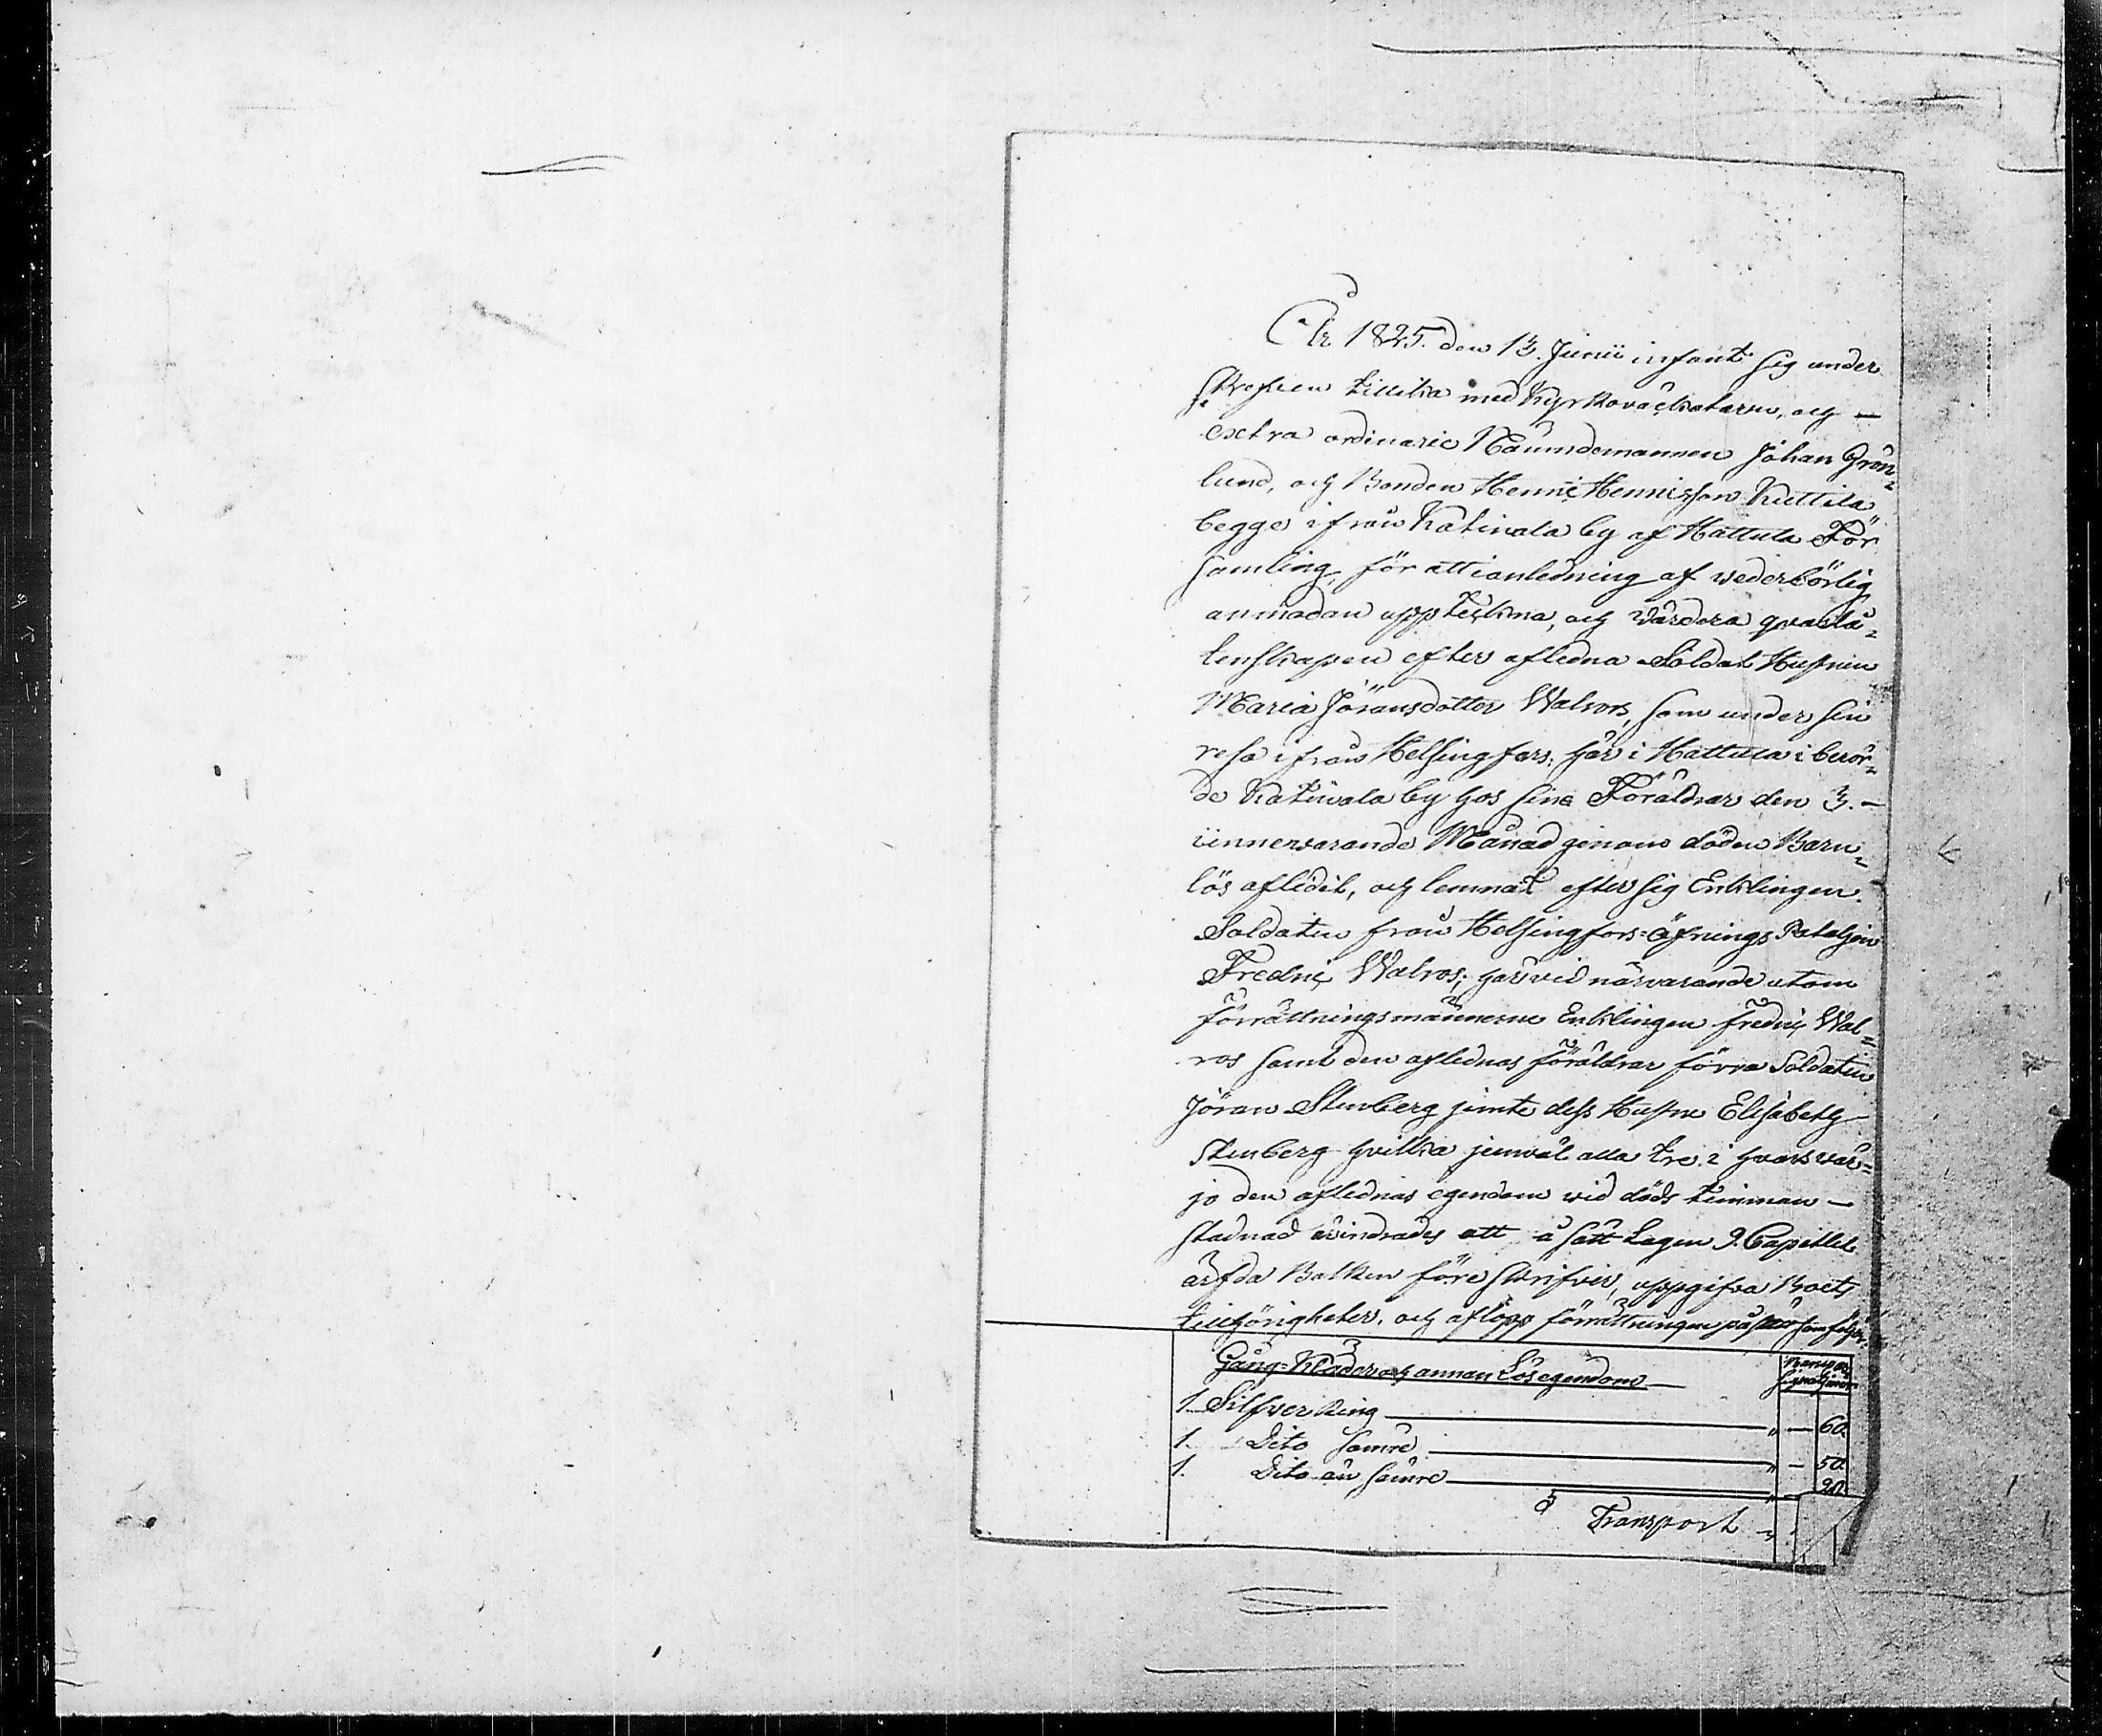 År 1825. den 13. Junii infant sig under
skrefven tillika med Kyrkováktaren, och —
exctra ordinarie Näumdemannen Johan Grön-
lund, och Bonden Henric Henricsson Kuttila
begge ifrån Katinala by af Hattula För
samling, för att i anledning af vederbörlig
anmodan upptekna, och Värdera qvarlå-
tenskapen efter afledna Soldat Hustrun
Maria Jöransdotter Walros, som under sin
resa ifrån Helsingfors, här i Hattula i berör-
de Katinala by hos sina Föräldrar den 3. —
innevarande Månad genom döden Barn-
lös aflidit, och lemnat efter sig Enklingen
Soldaten från Helsingfors=Öfnings Bataljon
Fredric Walros; harvid närvarande utom
förrättningsmännerne Enklingen Fredric Wal-
ros samt den aflednas föräldrar förra Soldaten
Jöran Stenberg jemte dess Hustru Elisabeth
Stenberg hvilka jemväl alla tre i hvars vär-
jo den aflednas egendom wid döds timman —
stadnad åtindrades att å sätt Lagen 9. Capitlet
ärfda Balken föreskrifver, uppgifva Boets
tillhörigheter, och aflopp förrättningen på sätt som följer.
Gång=Kläder och annan Lösegendom —
1. Silfver Ring — " — 60.
1. Dito samre — " — 50.
1. Dito än samre — " — 20.
Transport "